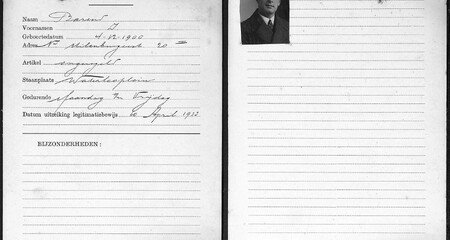 Naam Barend
Voornamen J
Geboortedatum 4-VI-1900
Adres N. Uilenburgerst. 20
Artikel ongeregeld
Staanplaats Waterlooplein
Gedurende Maandag t/m Vrijdag
Datum uitreiking legitimatiebewijs 10 April 1933
BIJZONDERHEDEN: